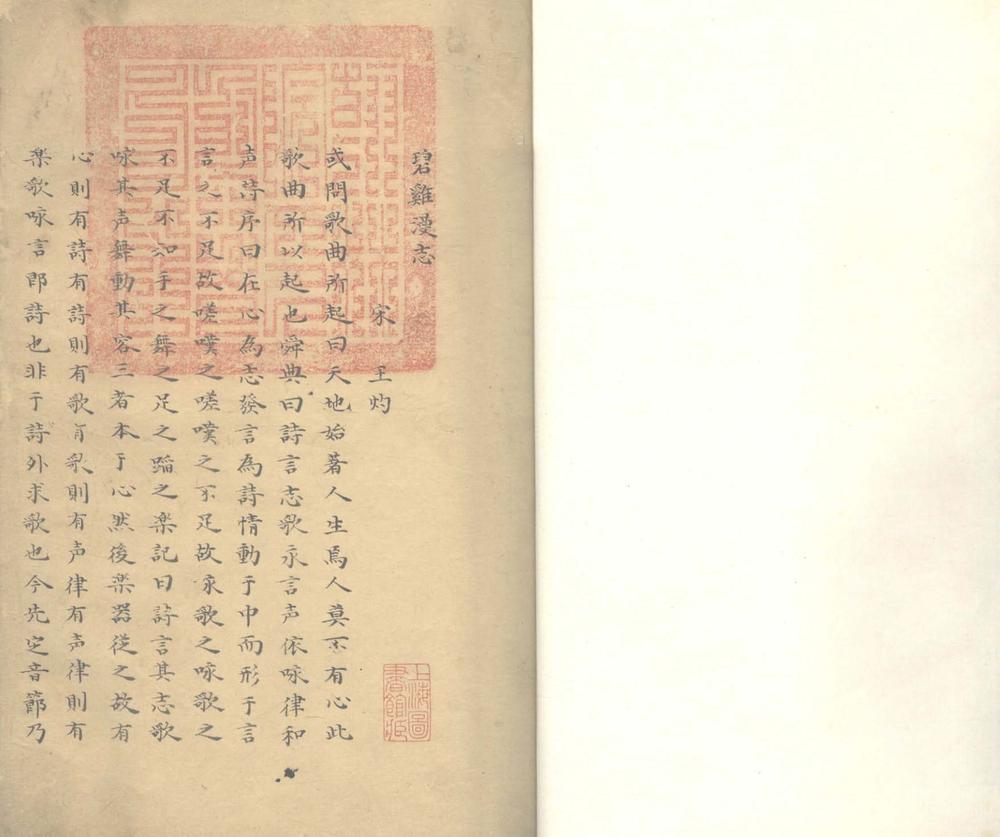 碧雞漫志
宋 王灼
或問歌曲所起曰天地始著人生焉人莫不有心此
歌曲所以起也舜典曰詩言志歌永言声依咏律和
声詩序曰在心為志發言為詩情動于中而形于言
言之不足故嗟嘆之嗟嘆之不足故永歌之咏歌之
不足不知手之舞之足之蹈之楽記曰詩言其志歌
咏其声舞動其容三者本于心然後楽器従之故有
心則有詩有詩則有歌有歌則有声律有声律則有
楽歌咏言即詩也非于詩外求歌也今先定音節乃
上海圖書館藏